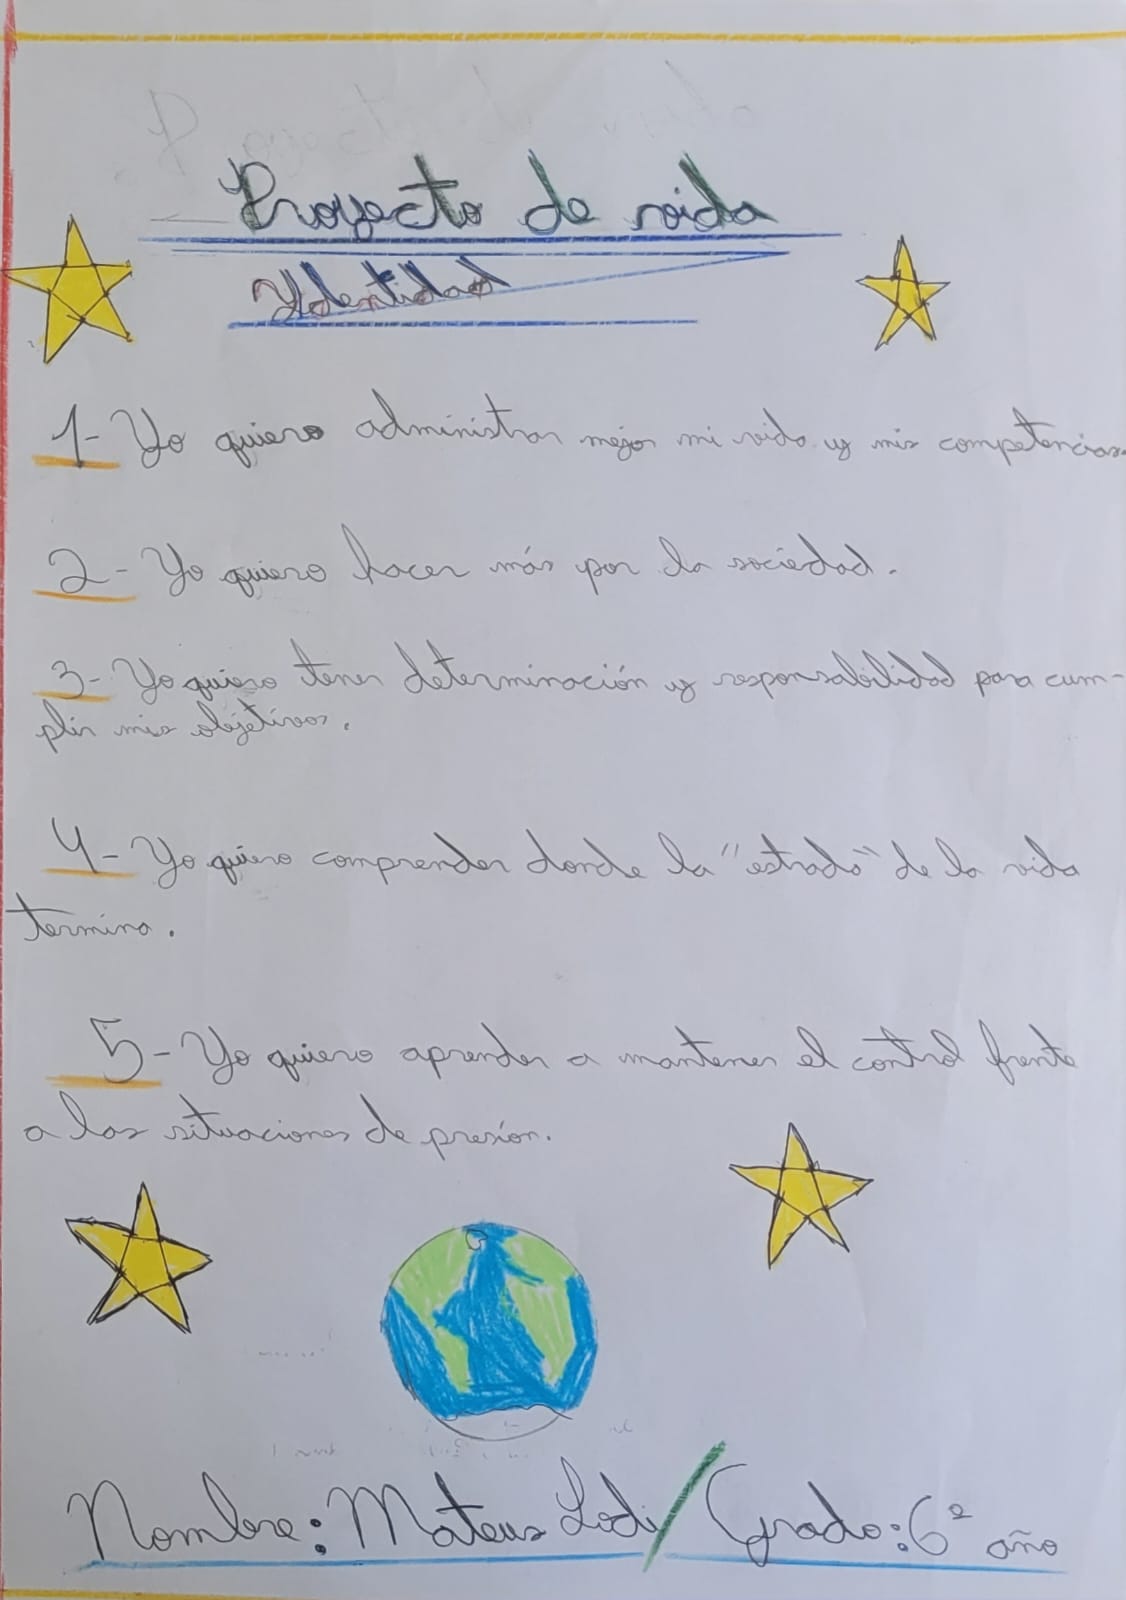 Proyecto de vida
Identidad
1- Yo quiero administrar mejor mi vida y mis competencias.
2- Yo quiero hacer más por la sociedad.
3- Yo quiero tener determinación y responsabilidad para cum-
plir mis objetivos.
4- Yo quiero comprender donde la "estrada" de la vida
termina.
5- Yo quiero aprender a mantener el control frente
a las situaciones de presíon.
Nombre: Mateus Lodi / Grado: 6º año